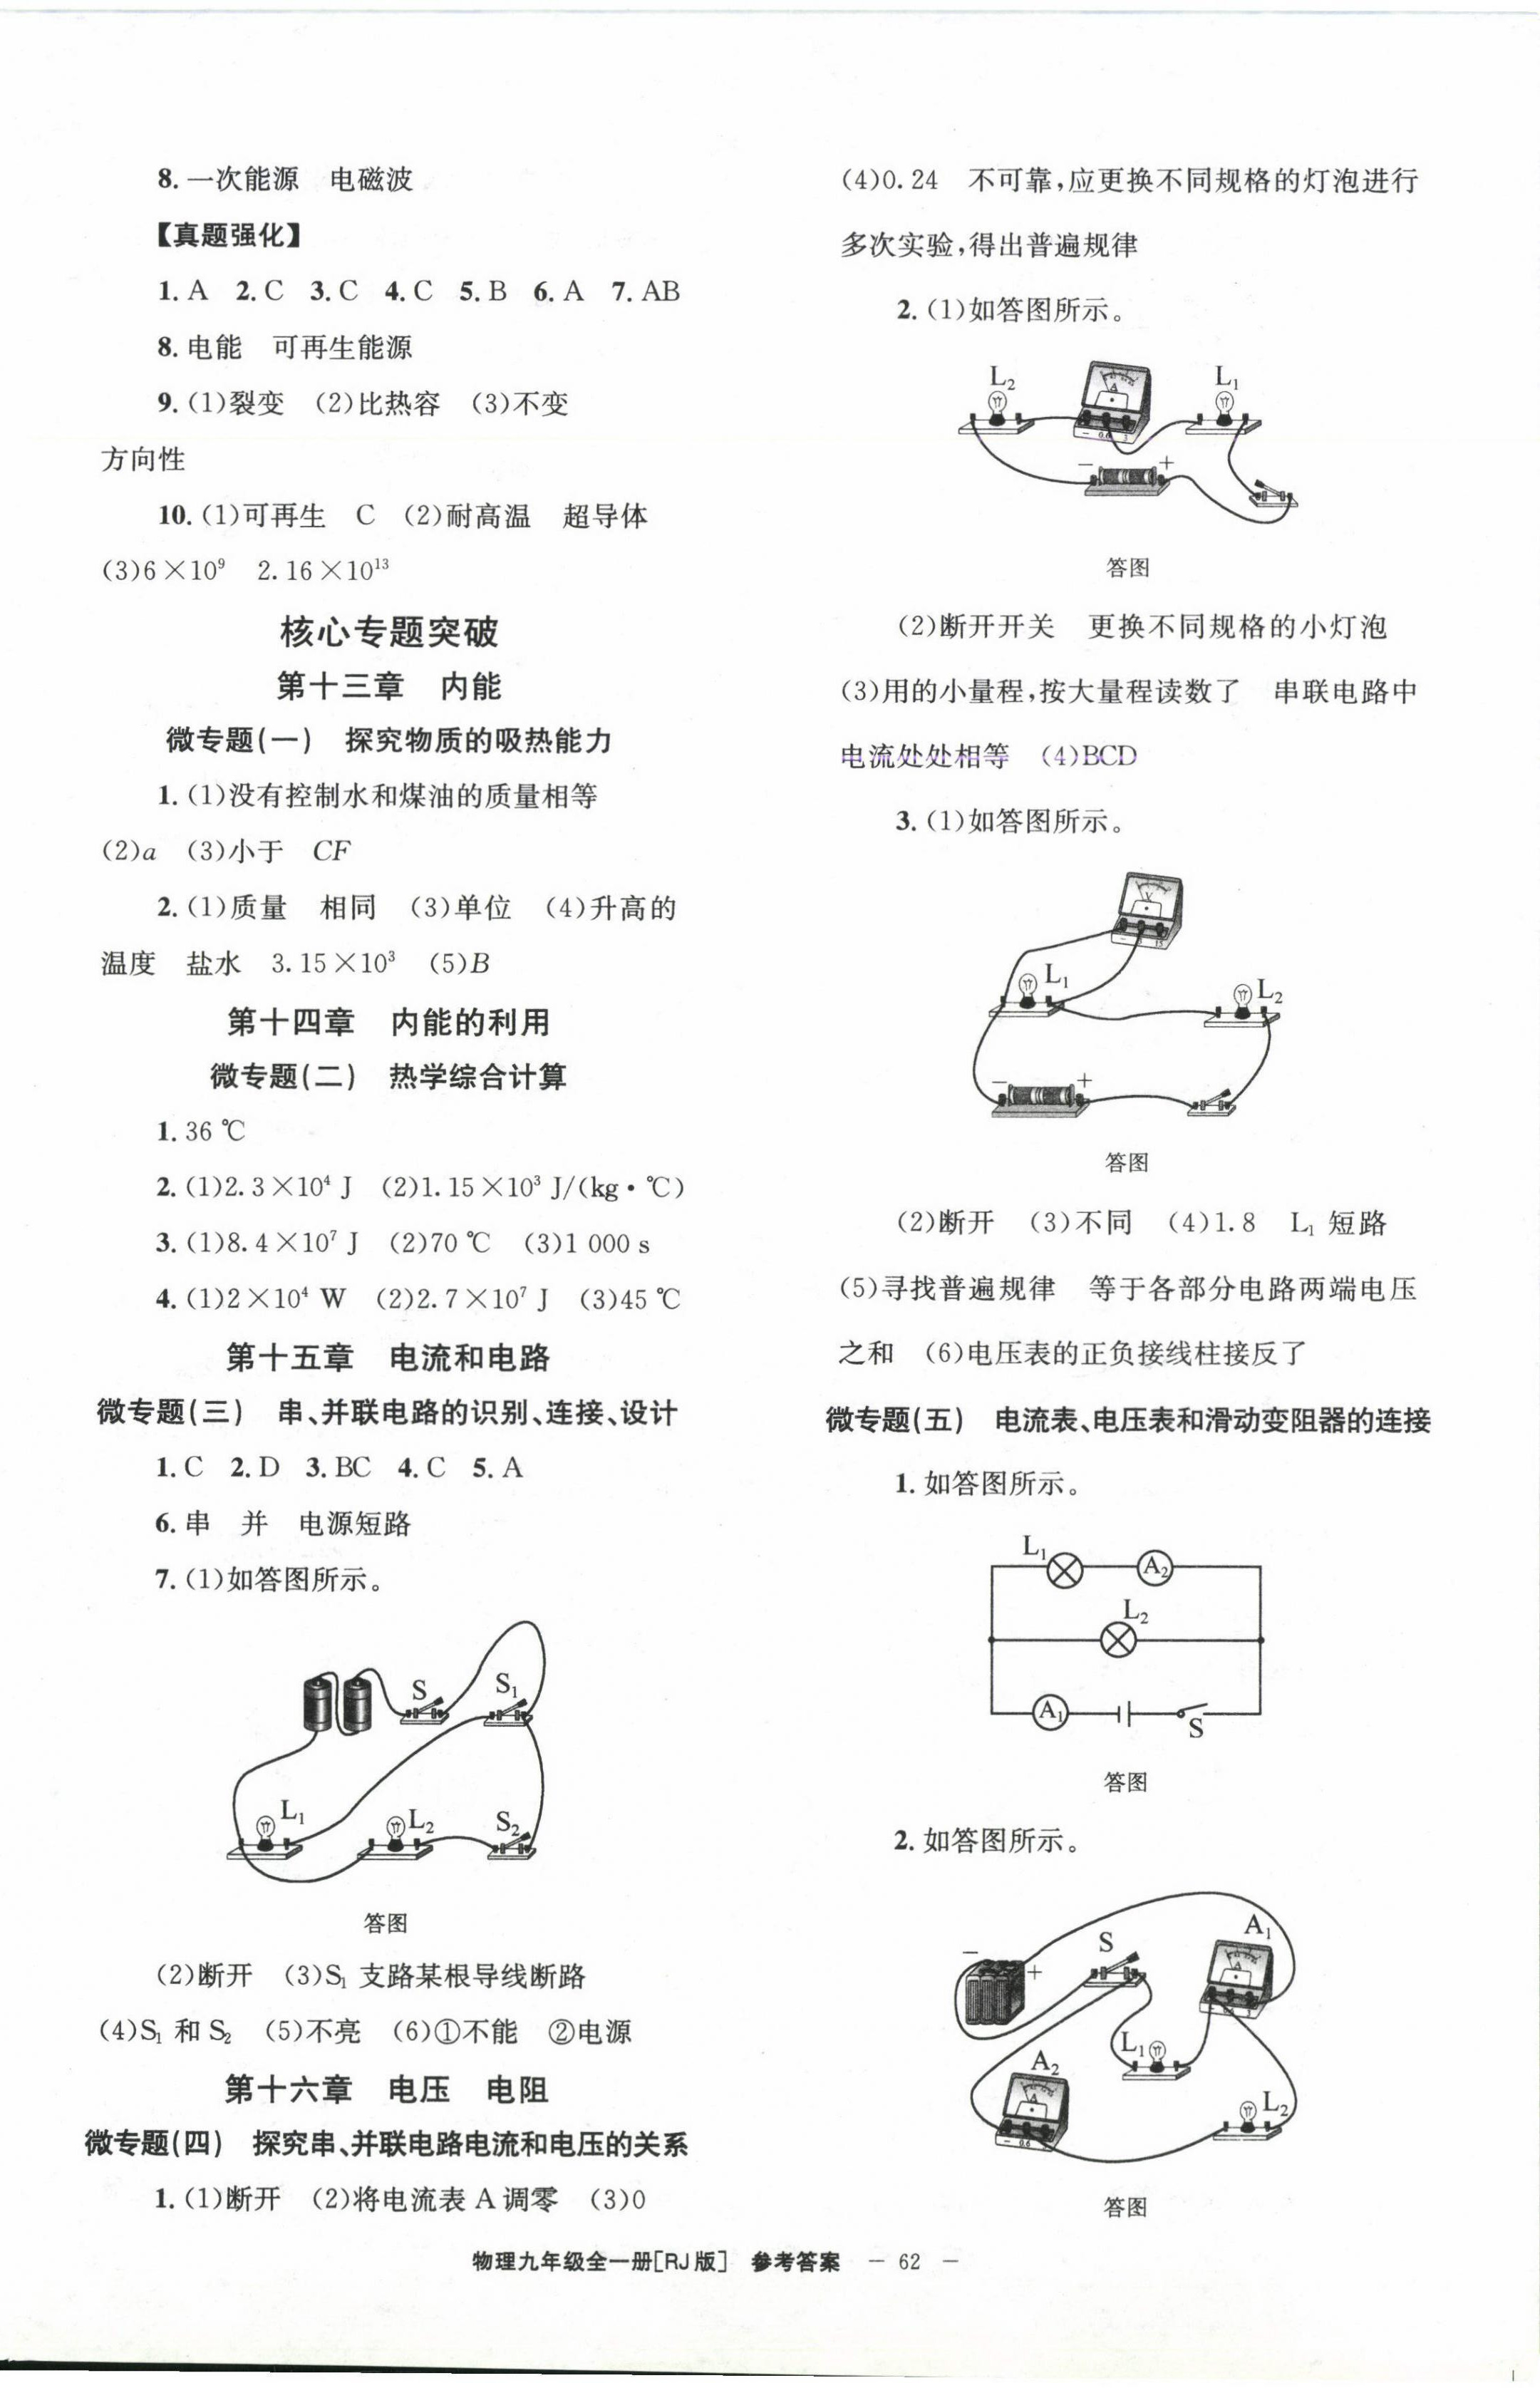 8. 一次能源　电磁波
【真题强化】
1. A　2. C　3. C　4. C　5. B　6. A　7. AB
8. 电能　可再生能源
9. (1)裂变　(2)比热容　(3)不变
方向性
10. (1)可再生　C　(2)耐高温　超导体
(3)6×10⁹　2.16×10¹³
核心专题突破
第十三章　内能
微专题(一)　探究物质的吸热能力
1. (1)没有控制水和煤油的质量相等
(2)a　(3)小于　CF
2. (1)质量　相同　(3)单位　(4)升高的
温度　盐水　3.15×10³　(5)B
第十四章　内能的利用
微专题(二)　热学综合计算
1. 36 ℃
2. (1)2.3×10⁴ J　(2)1.15×10³ J/(kg·℃)
3. (1)8.4×10⁷ J　(2)70 ℃　(3)1 000 s
4. (1)2×10⁴ W　(2)2.7×10⁷ J　(3)45 ℃
第十五章　电流和电路
微专题(三)　串、并联电路的识别、连接、设计
1. C　2. D　3. BC　4. C　5. A
6. 串　并　电源短路
7. (1)如答图所示。
S　S₁
L₁　L₂　S₂
答图
(2)断开　(3)S₁ 支路某根导线断路
(4)S₁ 和 S₂　(5)不亮　(6)①不能　②电源
第十六章　电压　电阻
微专题(四)　探究串、并联电路电流和电压的关系
1. (1)断开　(2)将电流表 A 调零　(3)0
(4)0.24　不可靠,应更换不同规格的灯泡进行
多次实验,得出普遍规律
2. (1)如答图所示。
L₂　A　L₁
− 0.6 3
−　+
答图
(2)断开开关　更换不同规格的小灯泡
(3)用的小量程,按大量程读数了　串联电路中
电流处处相等　(4)BCD
3. (1)如答图所示。
V
− 3 15
L₁　L₂
−　+
答图
(2)断开　(3)不同　(4)1.8　L₁ 短路
(5)寻找普遍规律　等于各部分电路两端电压
之和　(6)电压表的正负接线柱接反了
微专题(五)　电流表、电压表和滑动变阻器的连接
1. 如答图所示。
L₁　A₂
L₂
A₁　S
答图
2. 如答图所示。
−　+　S　A₁
A
− 0.6 3
L₁
A₂
A
− 0.6
L₂
答图
物理九年级全一册[RJ版]　参考答案　— 62 —